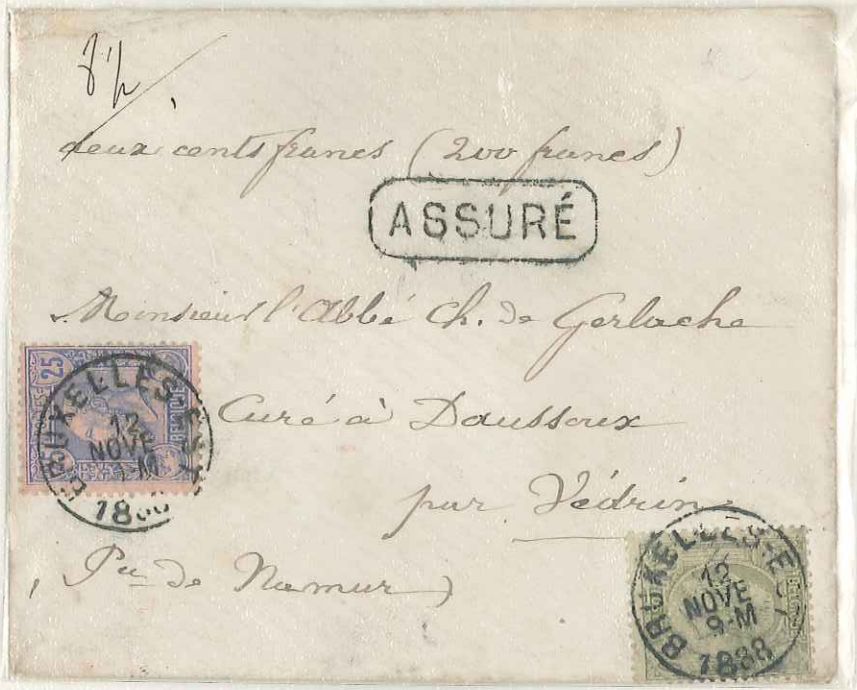 deux cents francs (200 francs)
ASSURÉ
Monsieur l'Abbé Ch. de Gerlache
Curé à Daussoux
par Védrin
(Pce de Namur)
25
BELGIQUE
BRUXELLES-EST
12
NOVE
-M
188
BRUXELLES-EST
12
NOVE
9-M
1888